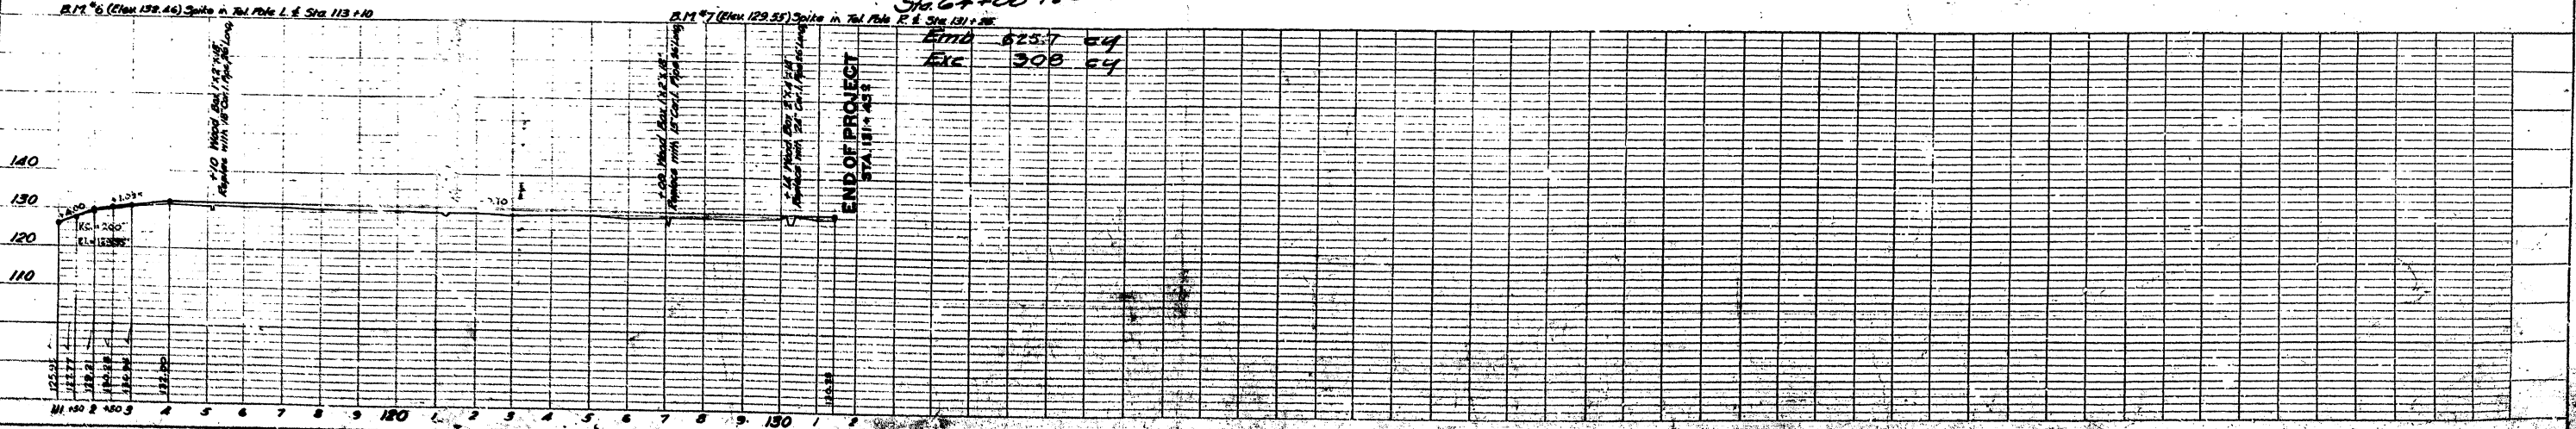 B.M. #6 (Elev. 132.46) Spike in Tel. Pole L ⅊ Sta. 113+10
B.M. #7 (Elev. 129.55) Spike in Tel. Pole R ⅊ Sta. 131+
Sta. 64+00 To
Emb 625.7 cy
Exc 308 cy
+10 Wood Box 1'x2'x18'
Replace with 18" Cor. I. Pipe Long
+00 Wood Box 1'x2'x18'
Replace with 18" Cor. I. Pipe Long
+14 Wood Box 2'x4'x18'
Replace with 24" Cor. I. Pipe Long
END OF PROJECT
STA. 131+45
140
130
120
110
+4.00
V.C. = 200'
+1.05%
125.95
127.77
129.21
130.28
130.95
132.00
111 +50 2 +50 3 4 5 6 7 8 9 120 1 2 3 4 5 6 7 8 9 130 1 2